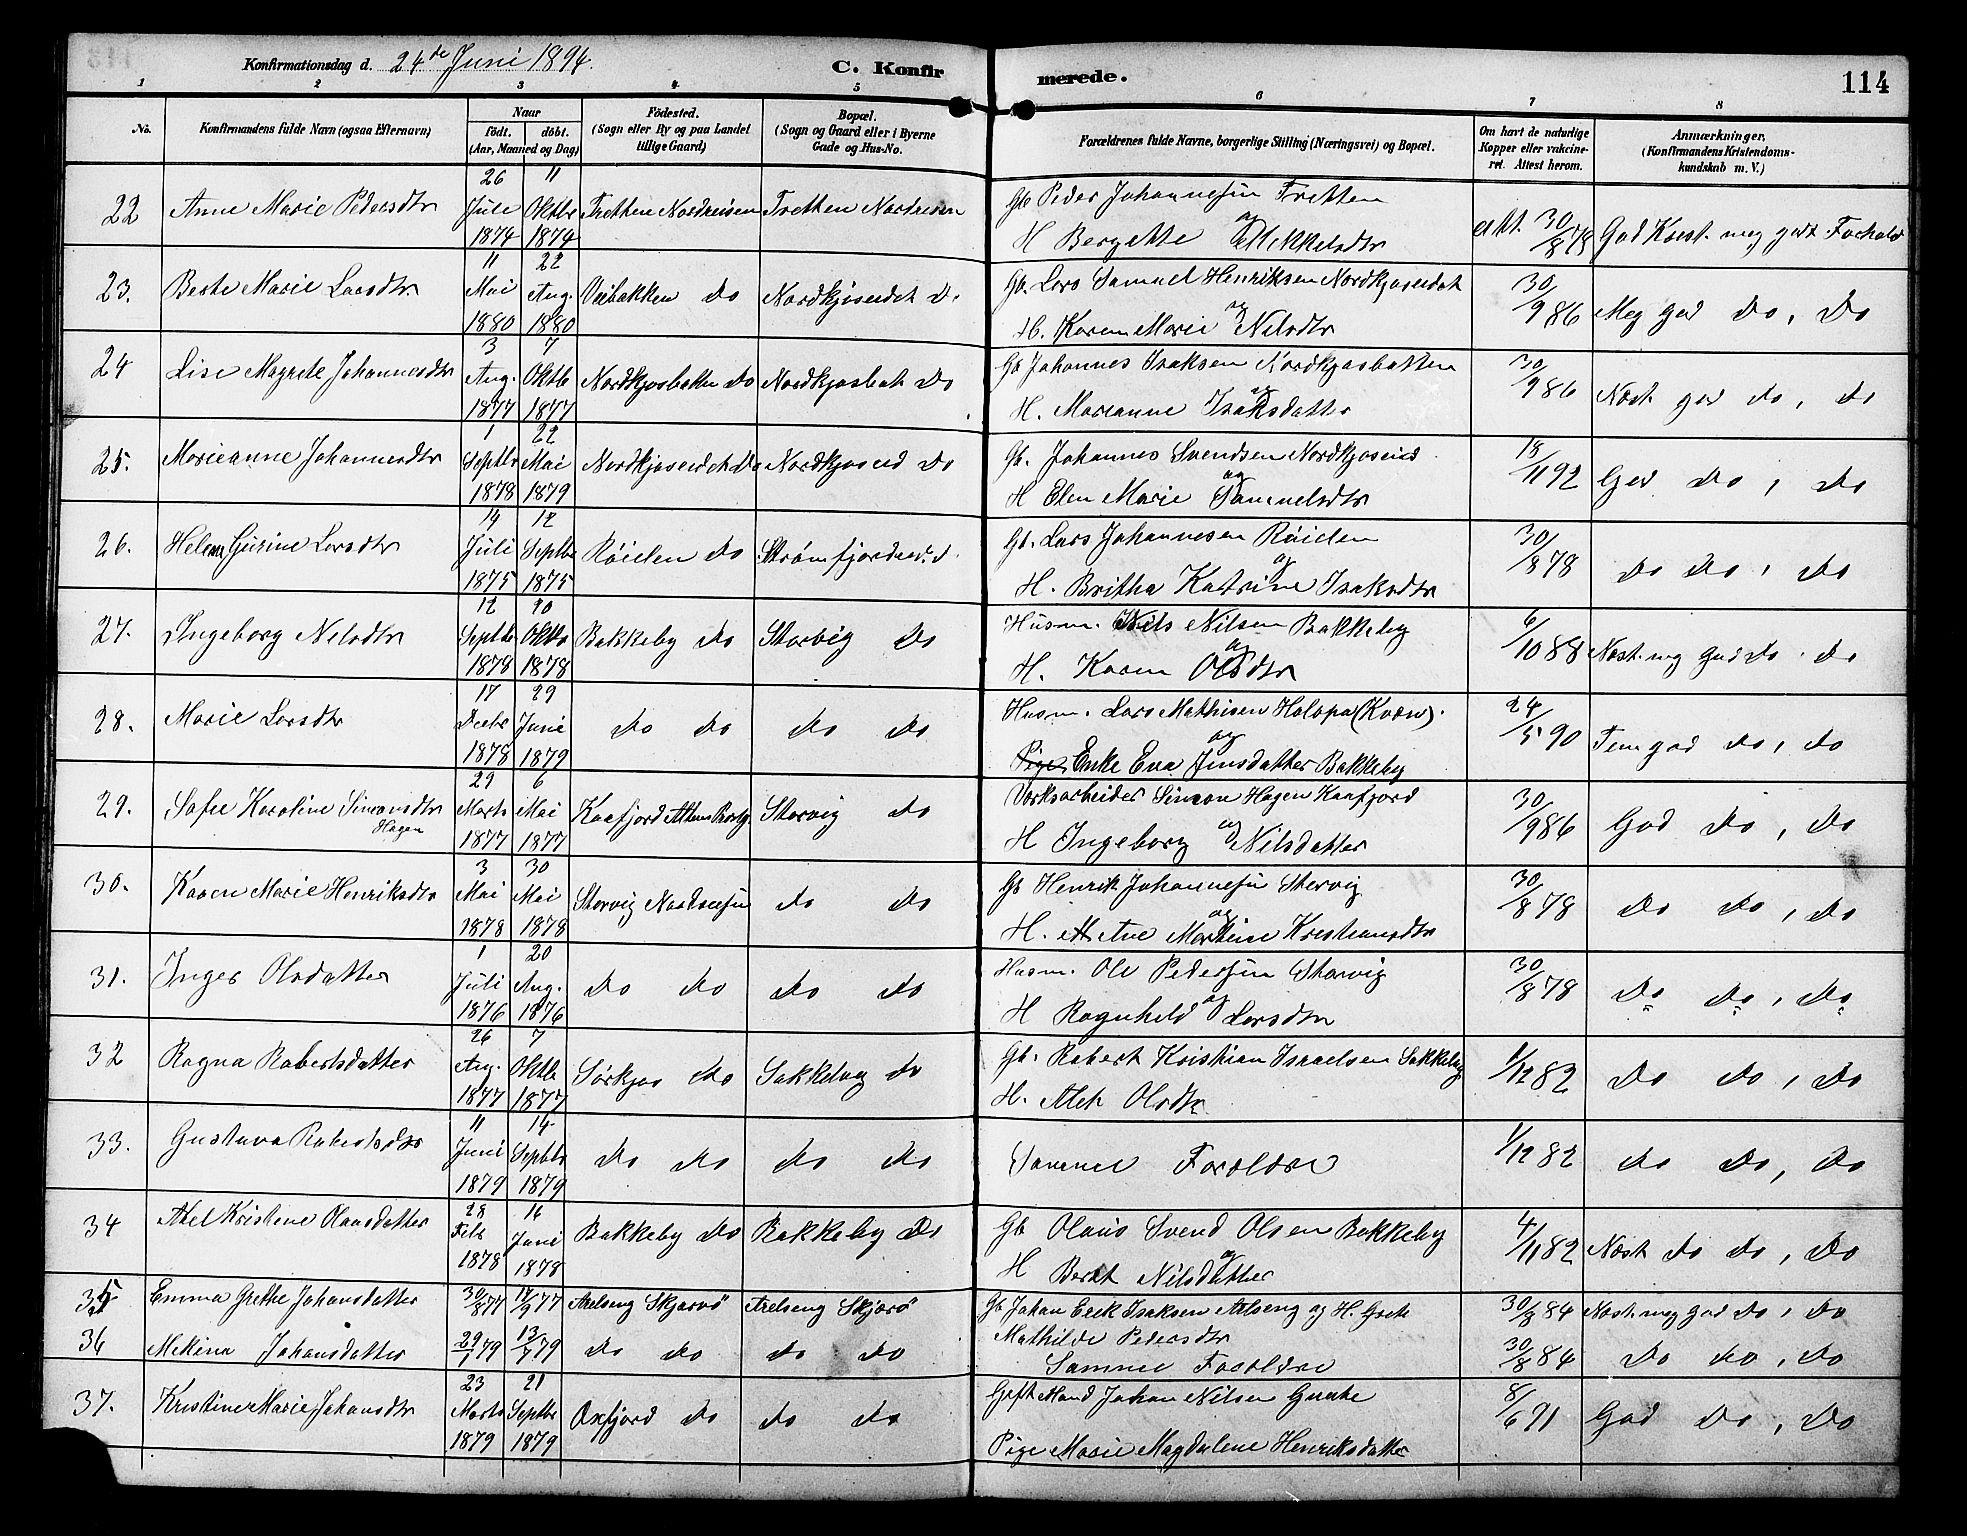 Konfirmationsdag d. 24de Juni 1894.
C. Konfirmerede.
114
1 2 3 4 5 6 7 8
No. Konfirmandens fulde Navn (ogsaa Efternavn) Naar født. døbt. (Aar, Maaned og Dag) Fødested. (Sogn eller By og paa Landet tillige Gaard) Bopæl. (Sogn og Gaard eller i Byerne Gade og Hus-No. Forældrenes fulde Navne, borgerlige Stilling (Næringsvei) og Bopæl. Om havt de naturlige Kopper eller vaccineret. Attest herom. Anmærkninger. (Konfirmandens Kristendomskundskab m. V.)
22 Anne Marie Pedersdtr 26 Juli 1874 11 Oktbr 1874 Tretten Nordreisen Tretten Nordreisen Gb Peder Johannesen Tretten
og H Bergette Mikkelsdtr att. 30/8 78 God Krist. meg godt Forhold
23. Berte Marie Larsdtr 11 Mai 1880 22 Aug. 1880 Veibakken do Nordkjoseidet do Gb. Lars Samuel Henriksen Nordkjoseidet
og H. Karen Marie Nilsdtr 30/9 86 Meg god do, do
24 Lise Magrete Johannesdtr 3 Aug. 1877 7 Oktb 1877 Nordkjosbotten do Nordkjosbot do Gb Johannes Isaksen Nordkjosbotten
og H. Marianne Isaksdatter 30/9 86 Næst. god do, do
25. Marieanne Johannesdtr 1 Septbr 1878 22 Mai 1879 Nordkjoseidet do Nordkjoseid do Gb. Johannes Svendsen Nordkjoseid
og H Elen Marie Samuelsdtr 18/11 92 God do, do
26. Helene Gurine Larsdtr 14 Juli 1875 12 Septbr 1875 Røielen do Strømfjordneid. d. Gb. Lars Johannesen Røielen
og H. Britha Katrine Isaksdtr 30/8 78 do do, do
27. Ingeborg Nilsdtr 12 Septbr 1878 20 Oktbr 1878 Bakkeby do Storvig do Husm. Nils Nilsen Bakkeby
og H. Karen Olsdtr 6/10 88 Næst. meg god do. do
28. Marie Larsdtr 17 Decbr 1878 29 Juni 1879 do do do do Husm. Lars Mathisen Halopa (Kvæn).
og Pige Enke Eva Jensdatter Bakkeby 24/5 90 Tem god do, do
29. Sofie Karoline Simonsdtr Hagen 29 Marts 1877 6 Mai 1877 Kaafjord Altens Prstg. Storvig do Værksarbeider Simon Hagen Kaafjord
og H Ingeborg Nilsdatter 30/9 86 God do, do
30. Karen Marie Henriksdtr 3 Mai 1878 30 Mai 1878 Storvig Nordreisen do do Gb Henrik Johannesen Storvig
og H. Ane Martine Kristiansdtr 30/8 78 do do, do
31. Inger Olsdatter 1 Juli 1876 20 Aug. 1876 do do do do Husm. Ole Pedersen Storvig
og H Ragnhild Larsdtr 30/8 78 do do, do
32 Ragna Robertsdatter 26 Aug. 1877 7 Oktb 1877 Sørkjos do Sokkelvig do Gb. Robert Kristian Israelsen Sokkelvig
H. Alet Olsdtr 1/12 82 do do, do
33. Gustava Robertsdtr 11 Juni 1879 14 Septbr 1879 do do do do Samme Forældre 1/12 82 do do, do
34 Alet Kristine Olausdatter 28 Feb 1878 16 Juni 1878 Bakkeby do Bakkeby do Gb Olaus Svend Olsen Bakkeby
og H Berit Nilsdatter 4/11 82 Næst do do, do
35 Emma Grethe Johansdatter 30/8 77 17/9 77 Arelseng Skjærvö Arelseng Skjærö Gb Johan Erik Isaksen Arelseng og H. Grete
Mathilde Pedersdtr 30/8 84 Næst. meg god do, do
36 Mekina Johansdatter 29/1 79 13/7 79 do do do do Samme Forældre 30/8 84 do do, do
37. Kristine Marie Johansdtr 23 Marts 1879 21 Septbr 1879 Oxfjord do do do Gift Mand Johan Nilsen
Pige Marie Magdalene Henriksdatter 8/6 91 God do, do